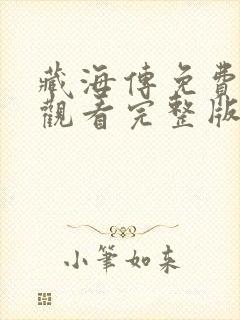 藏海傳免費
觀看完整版
小筆如来